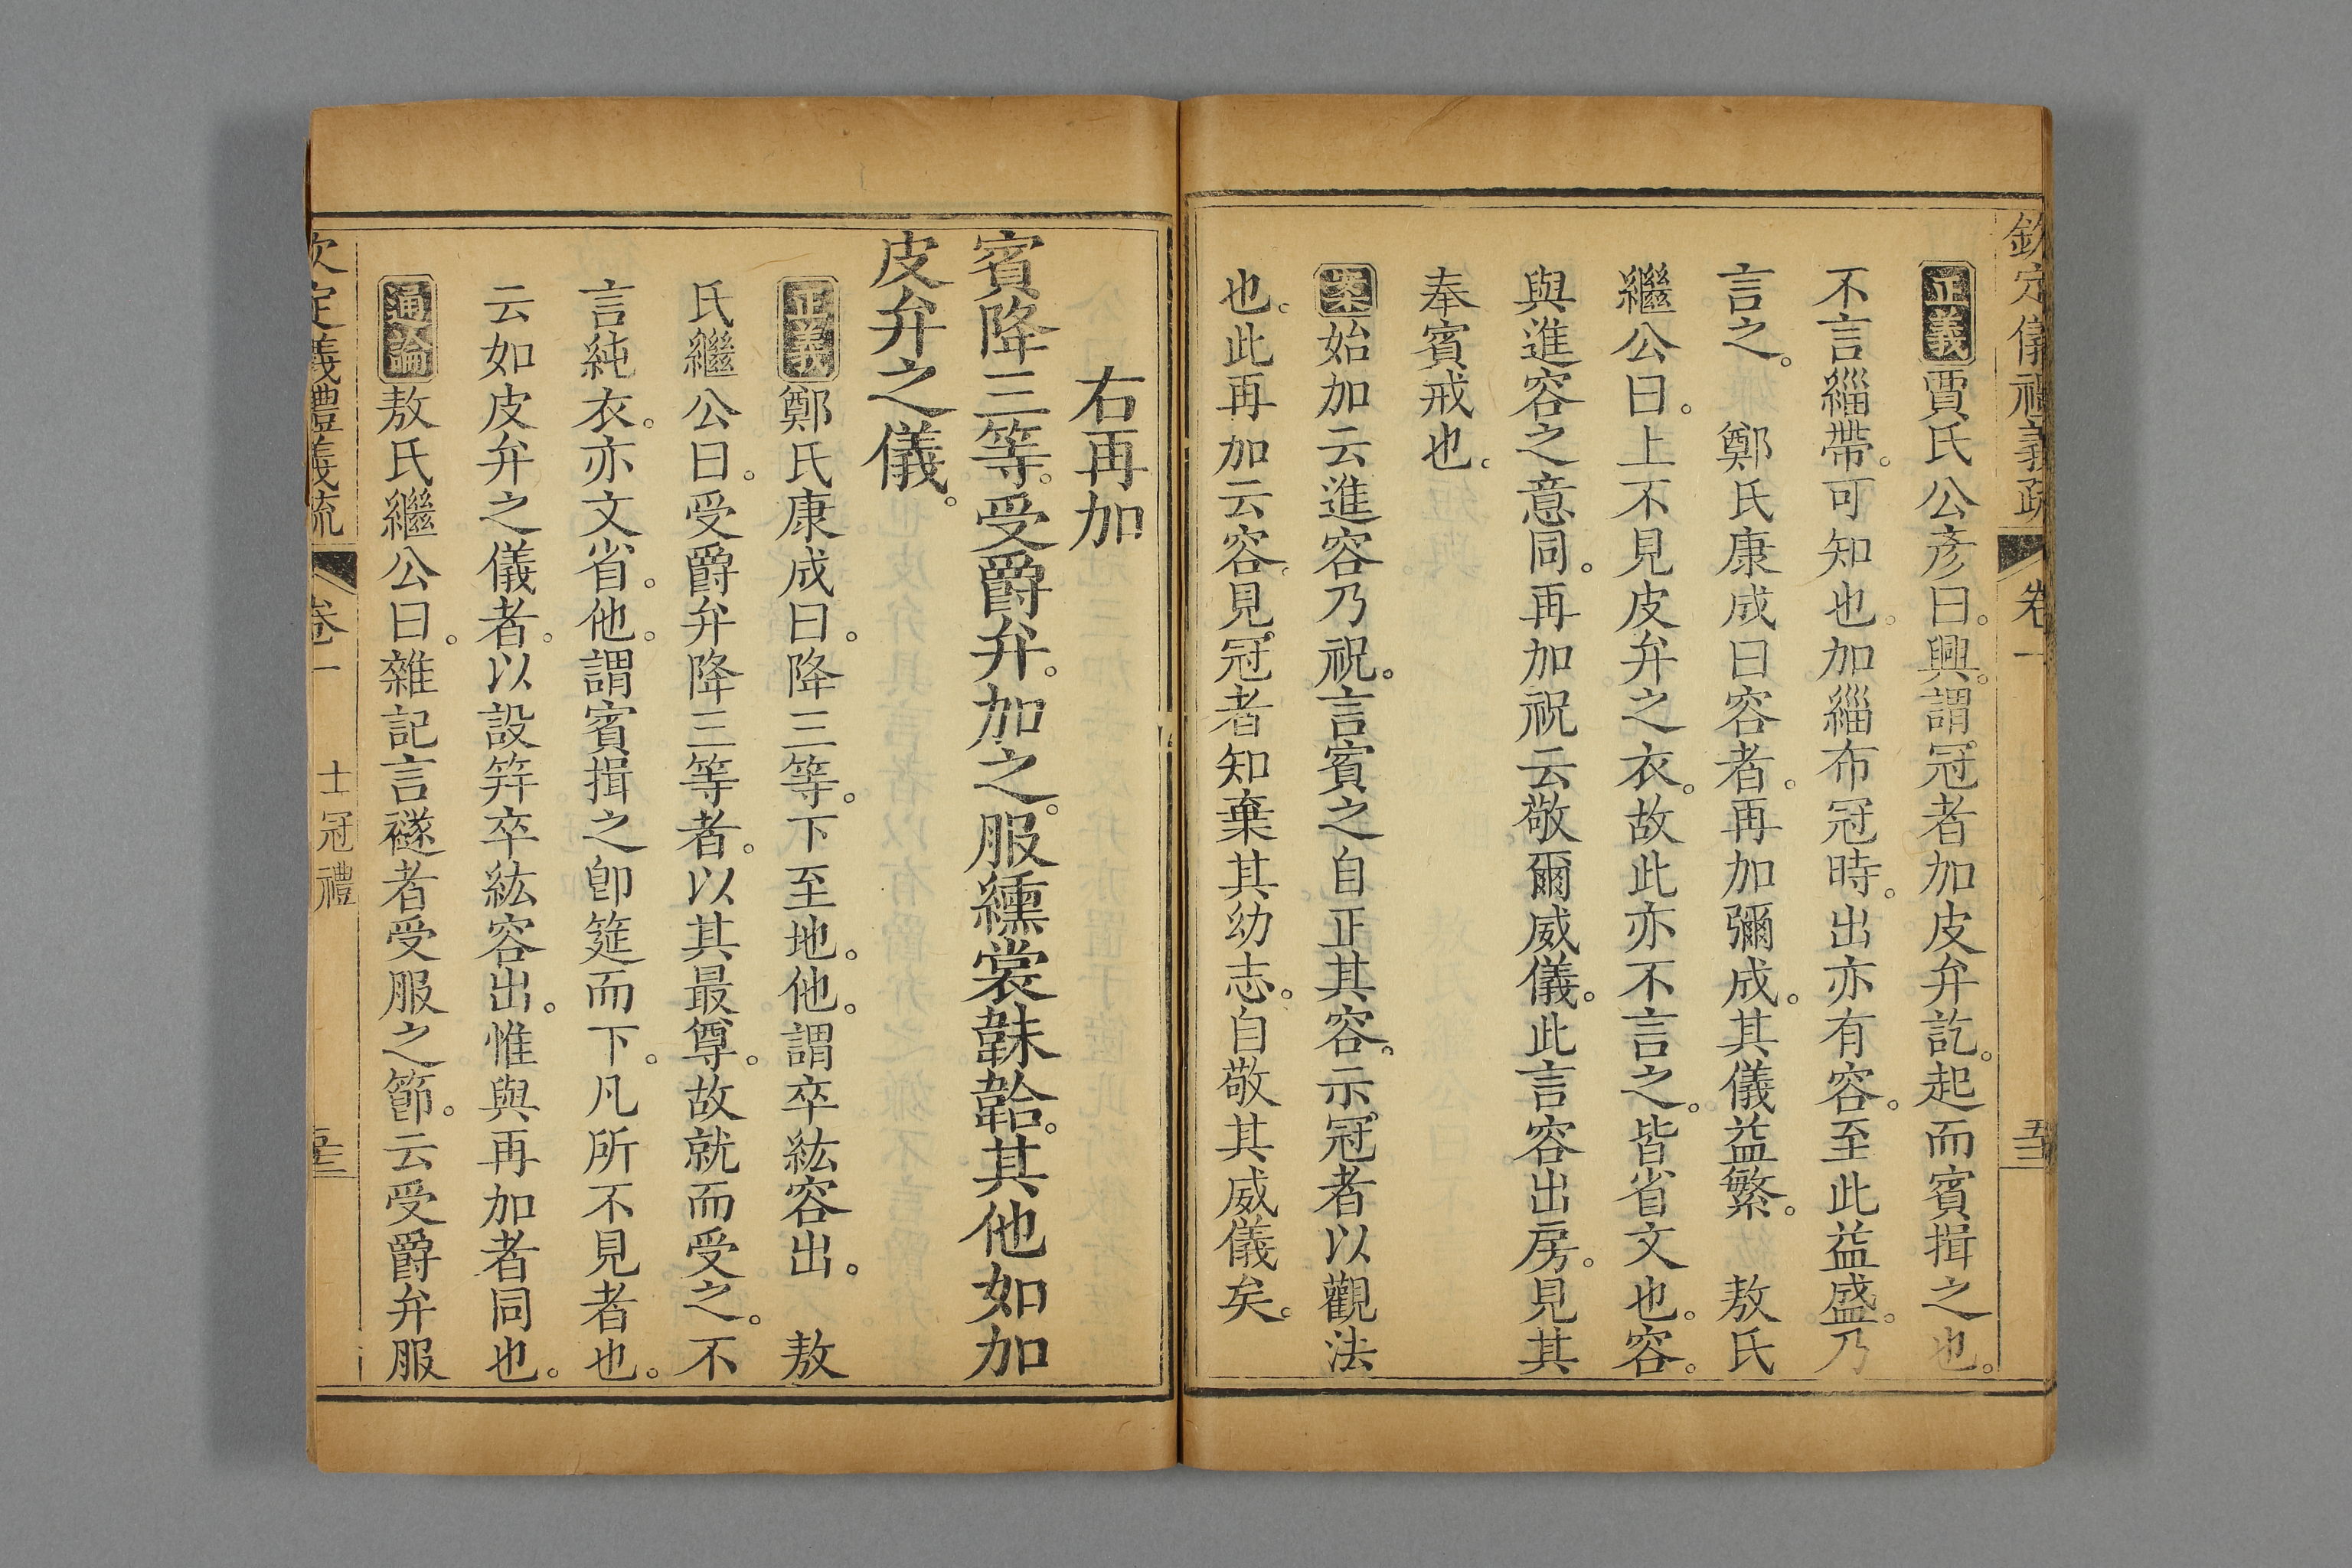 欽定儀禮義疏 卷一 五十三
正義賈氏公彥曰。興。謂冠者加皮弁訖。起而賓揖之也。
不言緇帶。可知也。加緇布冠時。出亦有容。至此益盛。乃
言之。 鄭氏康成曰容者。再加彌成。其儀益繁。 敖氏
繼公曰。上不見皮弁之衣。故此亦不言之。皆省文也。容。
與進容之意同。再加祝云敬爾威儀。此言容出房。見其
奉賓戒也。
案始加云進容乃祝。言賓之自正其容。示冠者以觀法
也。此再加云容。見冠者知棄其幼志。自敬其威儀矣。
右再加
賓降三等。受爵弁。加之。服纁裳韎韐。其他如加
皮弁之儀。
正義鄭氏康成曰。降三等。下至地。他。謂卒紘容出。 敖
氏繼公曰。受爵弁降三等者。以其最尊。故就而受之。不
言純衣。亦文省。他。謂賓揖之卽筵而下。凡所不見者也。
云如皮弁之儀者。以設笄卒紘容出。惟與再加者同也。
通論敖氏繼公曰。雜記言襚者受服之節。云受爵弁服
欽定儀禮義疏 卷一 士冠禮